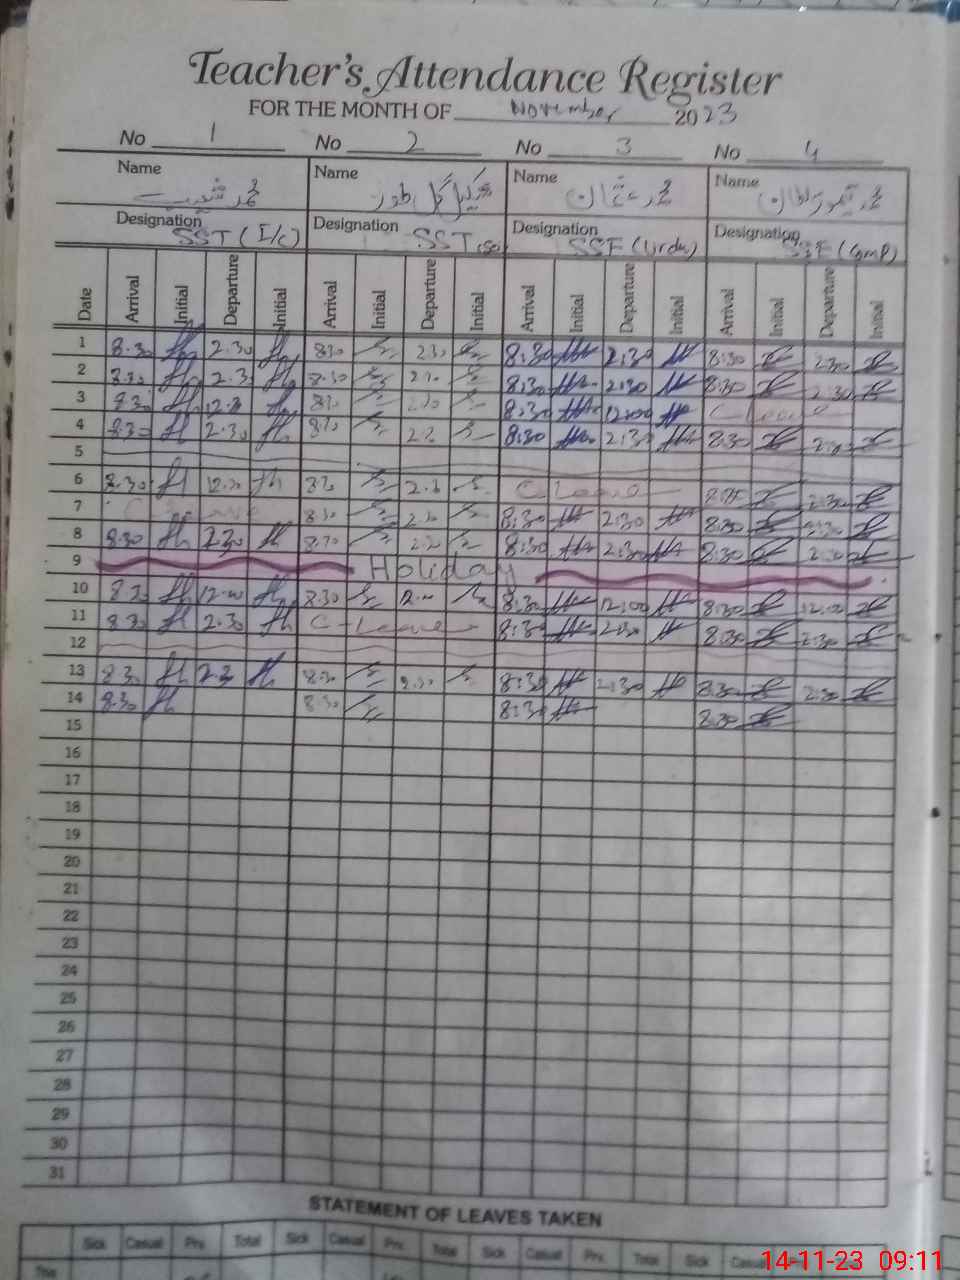 Teacher's Attendance Register
FOR THE MONTH OF November 2023
No 1 No 2 No 3 No 4
Name محمد شعیب Name شکیل Name محمد عثمان Name محمد تیمور
Designation SST (I/C) Designation SST (Sc) Designation SSE (Urdu) Designation SSE (Comp)
Date Arrival Initial Departure Initial Arrival Initial Departure Initial Arrival Initial Departure Initial Arrival Initial Departure Initial
1 8.30 2.30 830 230 8:30 2:30 8:30 2:30
2 8.30 2.30 8.30 2.30 8:30 2:30 8:30 2:30
3 8.30 12.00 8:30 12:00 C-Leave
4 8.30 2.30 8.30 2.30 8:30 2:30 8:30
5
6 8.30 8.30 2.30 C Leave 2:30
7 C Leave 8.30 2.30 8:30 2:30 8:30 2:30
8 8.30 2.30 8.30 2.30 8:30 2:30 8:30
9 Holiday
10 8.30 12.00 8.30 12.00 8:30 12:00 8:30 12:00
11 8.30 2.30 C-Leave 8:30 2:30 8:30 2:30
12
13 8.30 2.30 8.30 2.30 8:30 2:30 8:30 2:30
14 8.30 8.30 8:30 8:30
15
16
17
18
19
20
21
22
23
24
25
26
27
28
29
30
31
STATEMENT OF LEAVES TAKEN
Sick Casual Prv. Total Sick Casual Prv. Total Sick Casual Prv. Total Sick
14-11-23 09:11